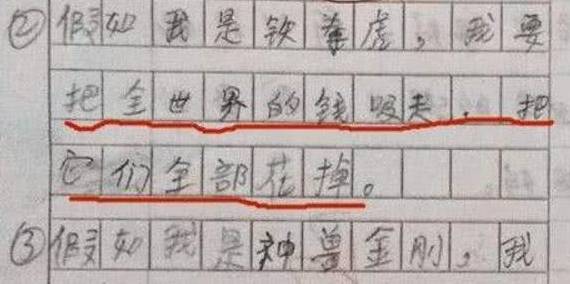 ②假如我是铁拳虎,我要
把全世界的钱吸夫,把
它们全部花掉。
③假如我是神兽金刚,我